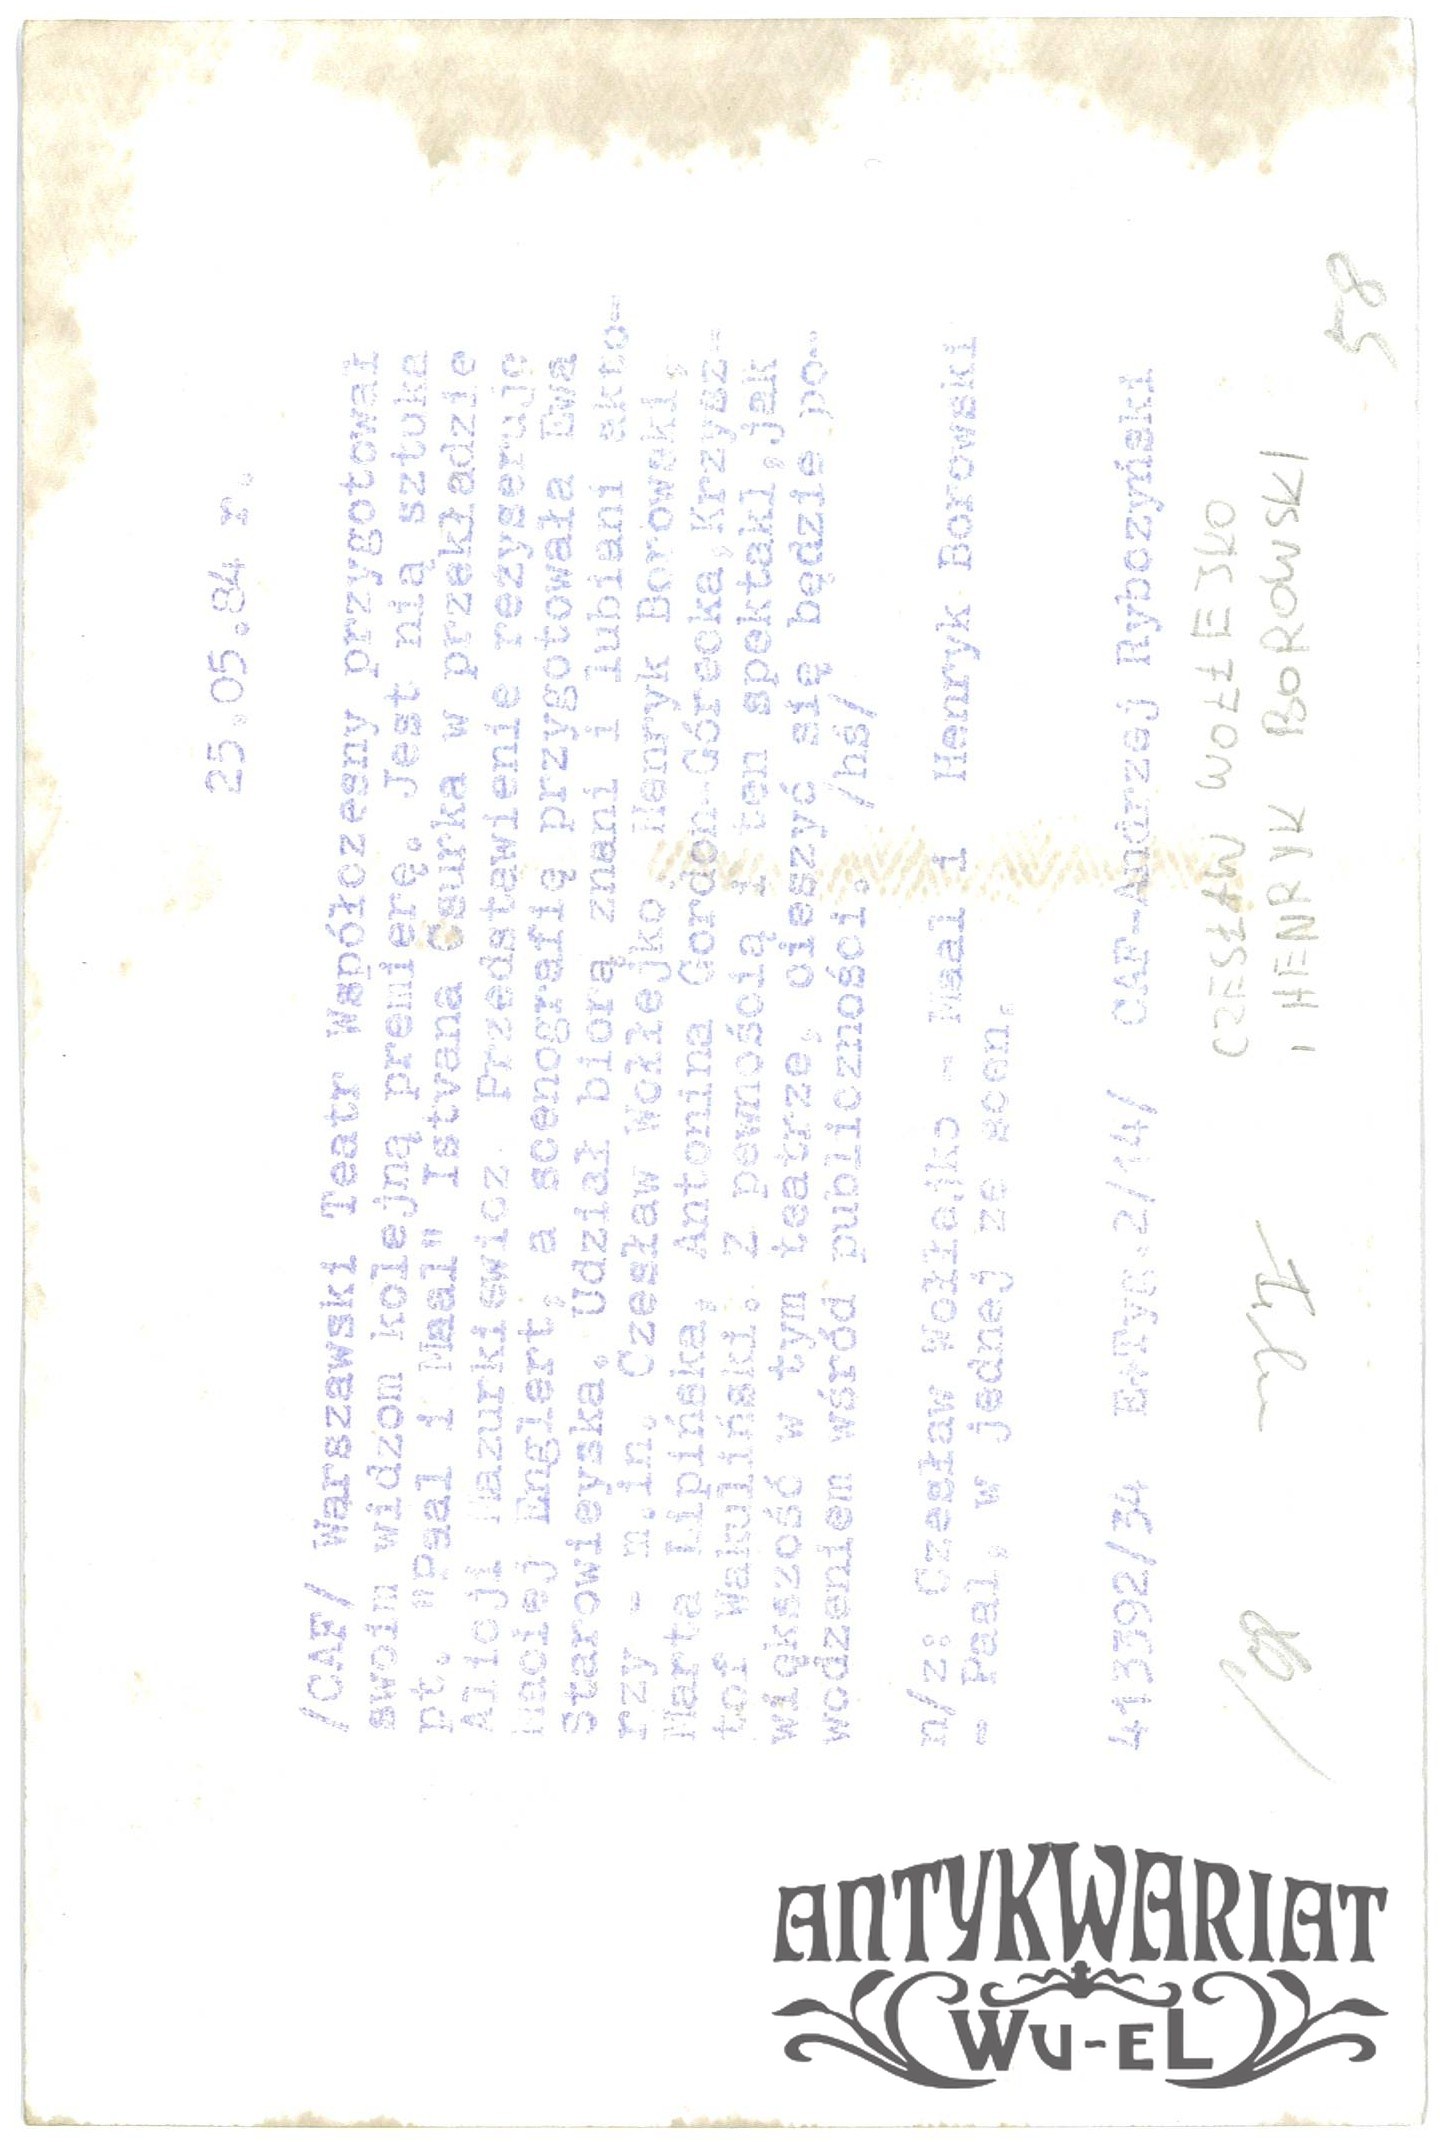 25.05.84 r.
/CAF/ Warszawski Teatr Współczesny przygotował
swoim widzom kolejną premierę. Jest nią sztuka
pt. "Paal i Maal" Istvana Csurka w przekładzie
Alicji Mazurkiewicz. Przedstawienie reżyseruje
Maciej Englert, a scenografię przygotowała Ewa
Starowieyska. Udział biorą znani i lubiani akto-
rzy - m.in. Czesław Wołłejko Henryk Borowski,
Marta Lipińska, Antonina Gordon-Górecka, Krzysz-
tof Wakuliński. Z pewnością i ten spektakl, jak
większość w tym teatrze, cieszyć się będzie po-
wodzeniem wśród publiczności. /hś/
n/z: Czesław Wołłejko - Maal i Henryk Borowski
- Paal, w jednej ze scen.
41392/34 CAF-Andrzej Rybczyński
CZESŁAW WOŁŁEJKO
I HENRYK BOROWSKI
58
ANTYKWARIAT
WU-EL